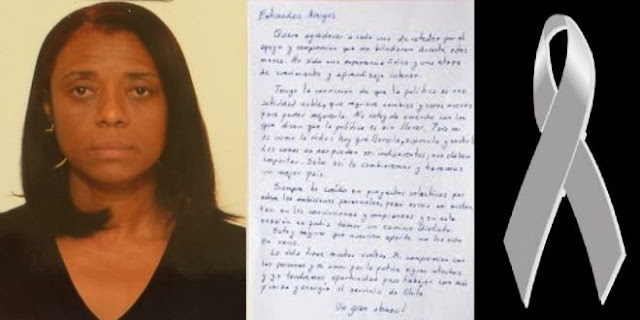 Estimados Amigos
Quiero agradecer a cada uno de ustedes por el
apoyo y compromiso que me brindaron durante estos
meses. Ha sido una experiencia única y una etapa
de crecimiento y aprendizaje intenso.
Tengo la convicción de que la política es una
actividad noble, que requiere cambios y caras nuevas
para poder mejorarla. No estoy de acuerdo con los
que dicen que la política es sin llorar. Para mi
es como la vida: hay que llorarla, expresarla y sentirla.
Las cosas no nos pueden ser indiferentes, nos deben
importar. Solo así la cambiaremos y haremos
un mejor país.
Siempre he creído en proyectos colectivos por
sobre las ambiciones personales, pero estos se
ten en las convicciones y
ocasión en tomar un camino distinto.
Estoy segura que nuestro aporte no ha sido
en vano.
La vida tiene muchas vueltas. Mi compromiso con
las personas y mi amor por la patria siguen intactos
y ya tendremos oportunidad para trabajar con más
fuerza y energía al servicio de Chile.
Un gran abrazo!